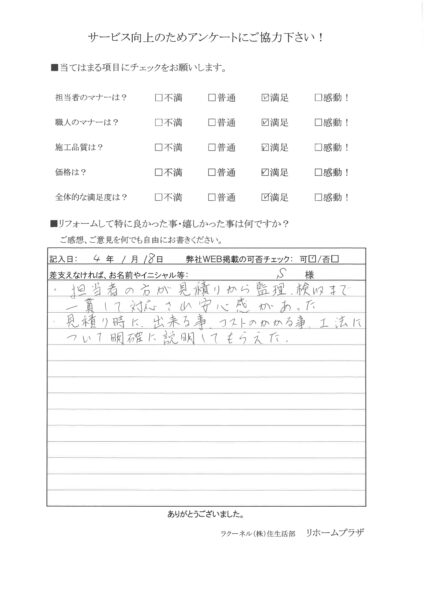 サービス向上のためアンケートにご協力下さい！
■当てはまる項目にチェックをお願いします。
担当者のマナーは？ □不満 □普通 ☑満足 □感動！
職人のマナーは？ □不満 □普通 ☑満足 □感動！
施工品質は？ □不満 □普通 ☑満足 □感動！
価格は？ □不満 □普通 ☑満足 □感動！
全体的な満足度は？ □不満 □普通 ☑満足 □感動！
■リフォームして特に良かった事・嬉しかった事は何ですか？
ご感想、ご意見を何でも自由にお書きください。
記入日： 4 年 1 月 18 日 弊社WEB掲載の可否チェック： 可☑/否□
差支えなければ、お名前やイニシャル等： S 様
・担当者の方が見積りから監理、検収まで
一貫して対応され安心感があった
・見積り時に、出来る事、コストのかかる事、工法に
ついて明確に説明してもらえた。
ありがとうございました。
ラクーネル（株）住生活部 リホームプラザ